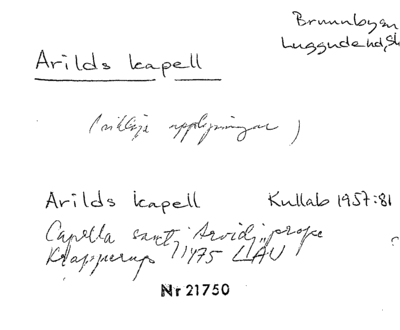 Brunnbysn
Luggudehd, Sk
Arilds kapell
(riktiga upplysningar)
Arilds kapell Kullab 1957:81
Capella sancti Arvidi, prope
Krapperup 1475 LAU ?
Nr 21750